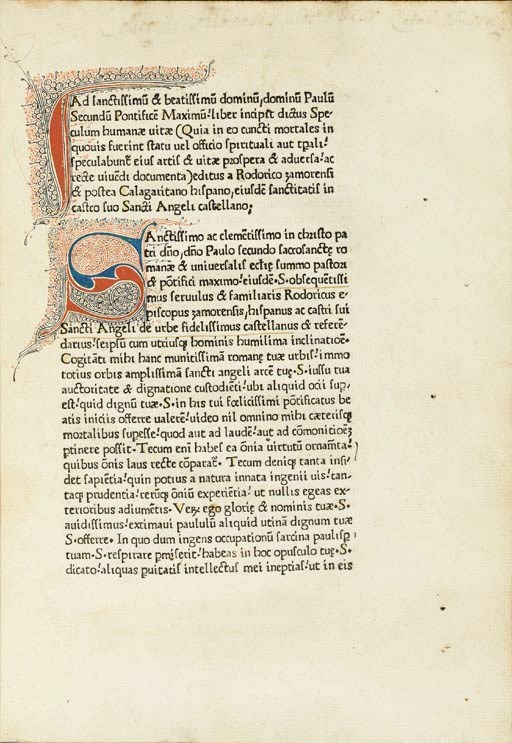 Ad sanctissimū & beatissimū dominū, dominū Paulū
Secundū Pontificē Maximū: liber incipit dictus Spe-
culum humanæ uitæ (Quia in eo cuncti mortales in
quouis fuerint statu uel officio spirituali aut tp̄ali:
speculabunt̄ eius artis & uitæ prospera & aduersa: ac
recte uiuendi documenta) editus a Rodorico zamorensi
& postea Calagaritano hispano, eiusdē sanctitatis in
castro suo Sancti Angeli castellano;
SAnctissimo ac clemētissimo in christo pa
tri dn̄o, dn̄o Paulo secundo sacrosanctę ro
manæ & uniuersalis ecłię summo pastori
& pōtifici maximo: eiusdē·S·obsequētissi
mus seruulus & familiaris Rodoricus e-
piscopus zamorensis, hispanus ac castri sui
Sancti Angeli de urbe fidelissimus castellanus & referē-
darius: seipsū cum utriusqꝫ hominis humilima inclinatiōe·
Cogitāti mihi hanc munitissimā romanę tuæ urbis: immo
totius orbis amplissimā sancti angeli arcē tuę·S·iussu tua
auctoritate & dignatione custodiēti: ubi aliquid ocii sup̱
est: quid dignū tuæ·S·in his tui fœlicissimi pōtificatus be
atis iniciis offerre ualerē: uideo nil omnino mihi cæterisqꝫ
mortalibus supesse: quod aut ad laudē: aut ad cōmonitiōeꝫ
ptinere possit· Tecum eni habes ea ōnia uirtutū ornamta:
quibus ōnis laus recte cōparat̄· Tecum deniqꝫ tanta insi-
det sapiētia: quin potius a natura innata ingenii uis: tan-
taqꝫ prudentia: rerūqꝫ ōniū experiētia: ut nullis egeas ex-
terioribus adiumētis· Veꝝ ego glorię & nominis tuæ·S·
auidissimus: eximaui paululū aliquid utinā dignum tuæ
·S·offerre· In quo dum ingens occupationū sarcina paulisp̱
tuam·S·respirare pmiserit: habeas in hoc opusculo tuę·S·
dicato: aliquas puitatis intellectus mei ineptias: ut in eis